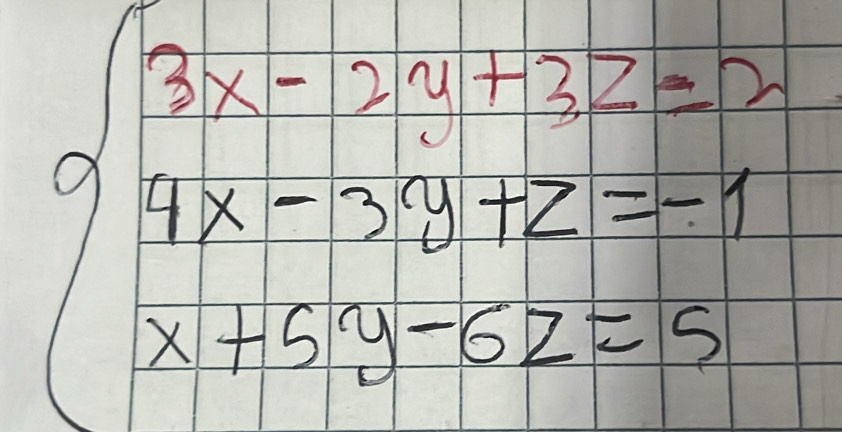 3x - 2y + 3z = 2
4x - 3y + z = -1
x + 5y - 6z = 5